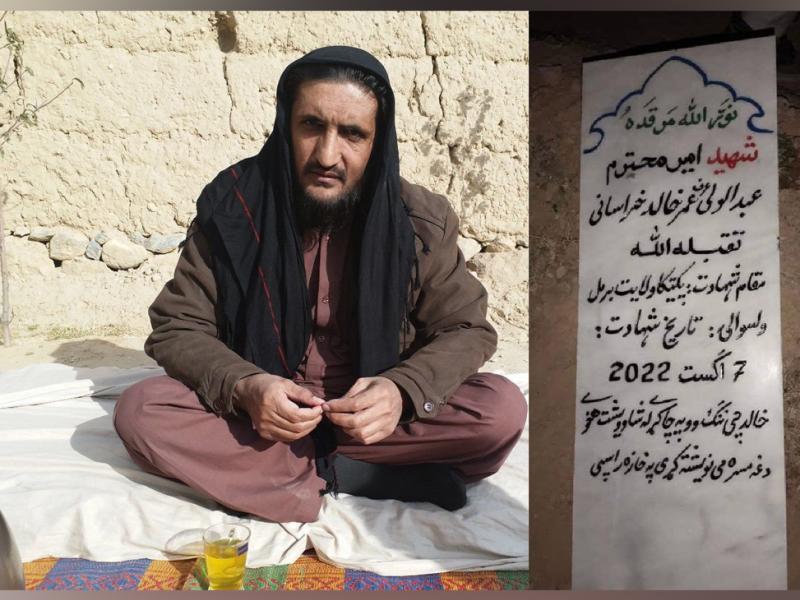 نور الله مرقده
شهید امیر محترم
عبدالولی عمر خالد خراسانی
تقبله الله
مقام شهادت: پکتیکا ولایت برمل
ولسوالی: تاریخ شهادت:
7 اگست 2022
خالد چي ننګ وو په چا کړې له شا ویشت
دغه مسره مې نویشته کړئ په خازه راسپي